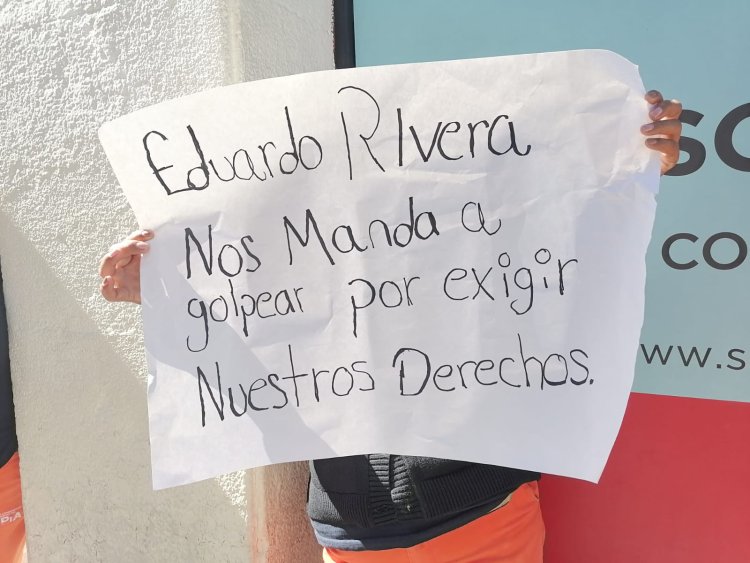 Eduardo RIvera
Nos Manda a
golpear por exigir
Nuestros Derechos.
co
www.s
DIA